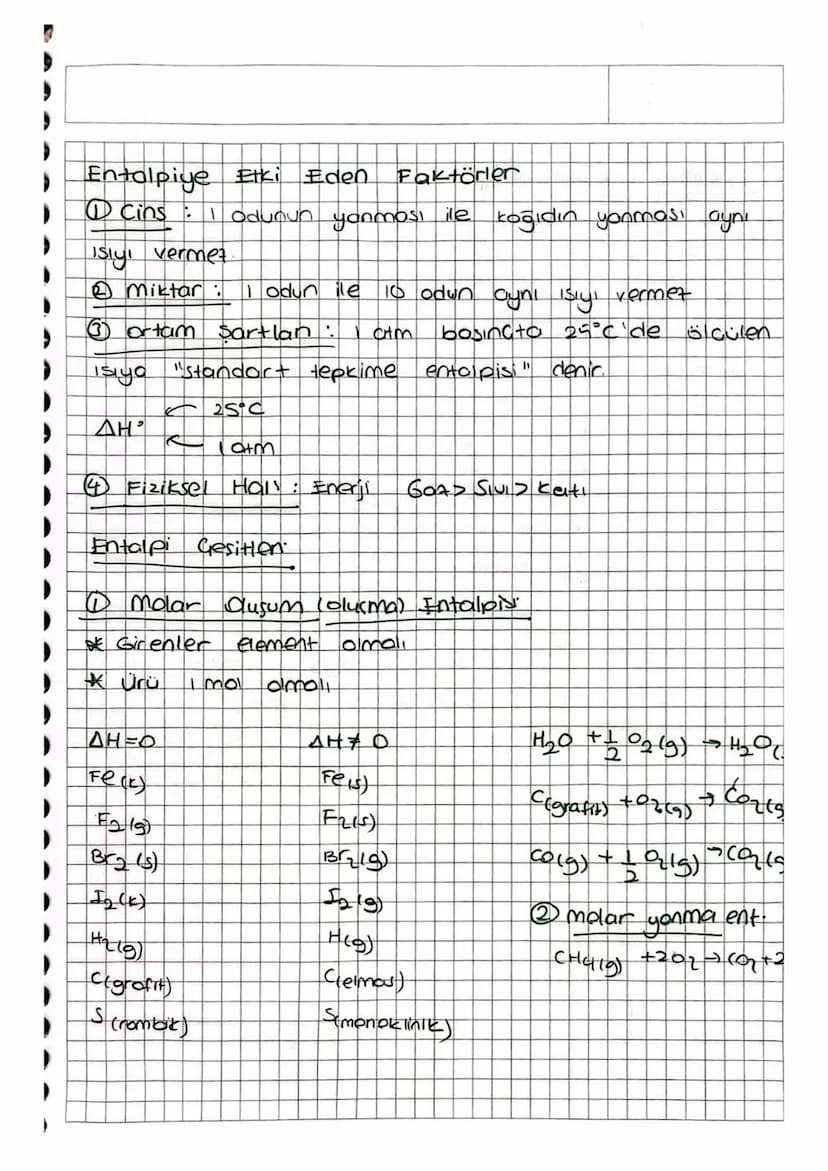 Entalpiye Etki Eden Faktörler
① Cins : 1 odunun yanması ile kağıdın yanması aynı
ısıyı vermez.
② Miktar : 1 odun ile 10 odun aynı ısıyı vermez
③ Ortam Şartları : 1 atm basınçta 25°C'de ölçülen
ısıya "standart tepkime entalpisi" denir.
ΔH° ← 25°C
← 1 atm
④ Fiziksel Hali : Enerji Gaz > Sıvı > Katı
Entalpi Çeşitleri
① Molar Oluşum (oluşma) Entalpisi
* Girenler element olmalı
* Ürü 1 mol olmalı
ΔH=0
Fe(k)
F2(g)
Br2(s)
I2(k)
H2(g)
C(grafit)
S(rombik)
ΔH≠0
Fe(s)
F2(s)
Br2(g)
I2(g)
H(g)
C(elmas)
S(monoklinik)
H2O + 1/2 O2(g) → H2O(
C(grafit) + O2(g) → CO2(g
CO(g) + 1/2 O2(g) → CO2(g
② molar yanma ent.
CH4(g) + 2O2 → CO2 + 2